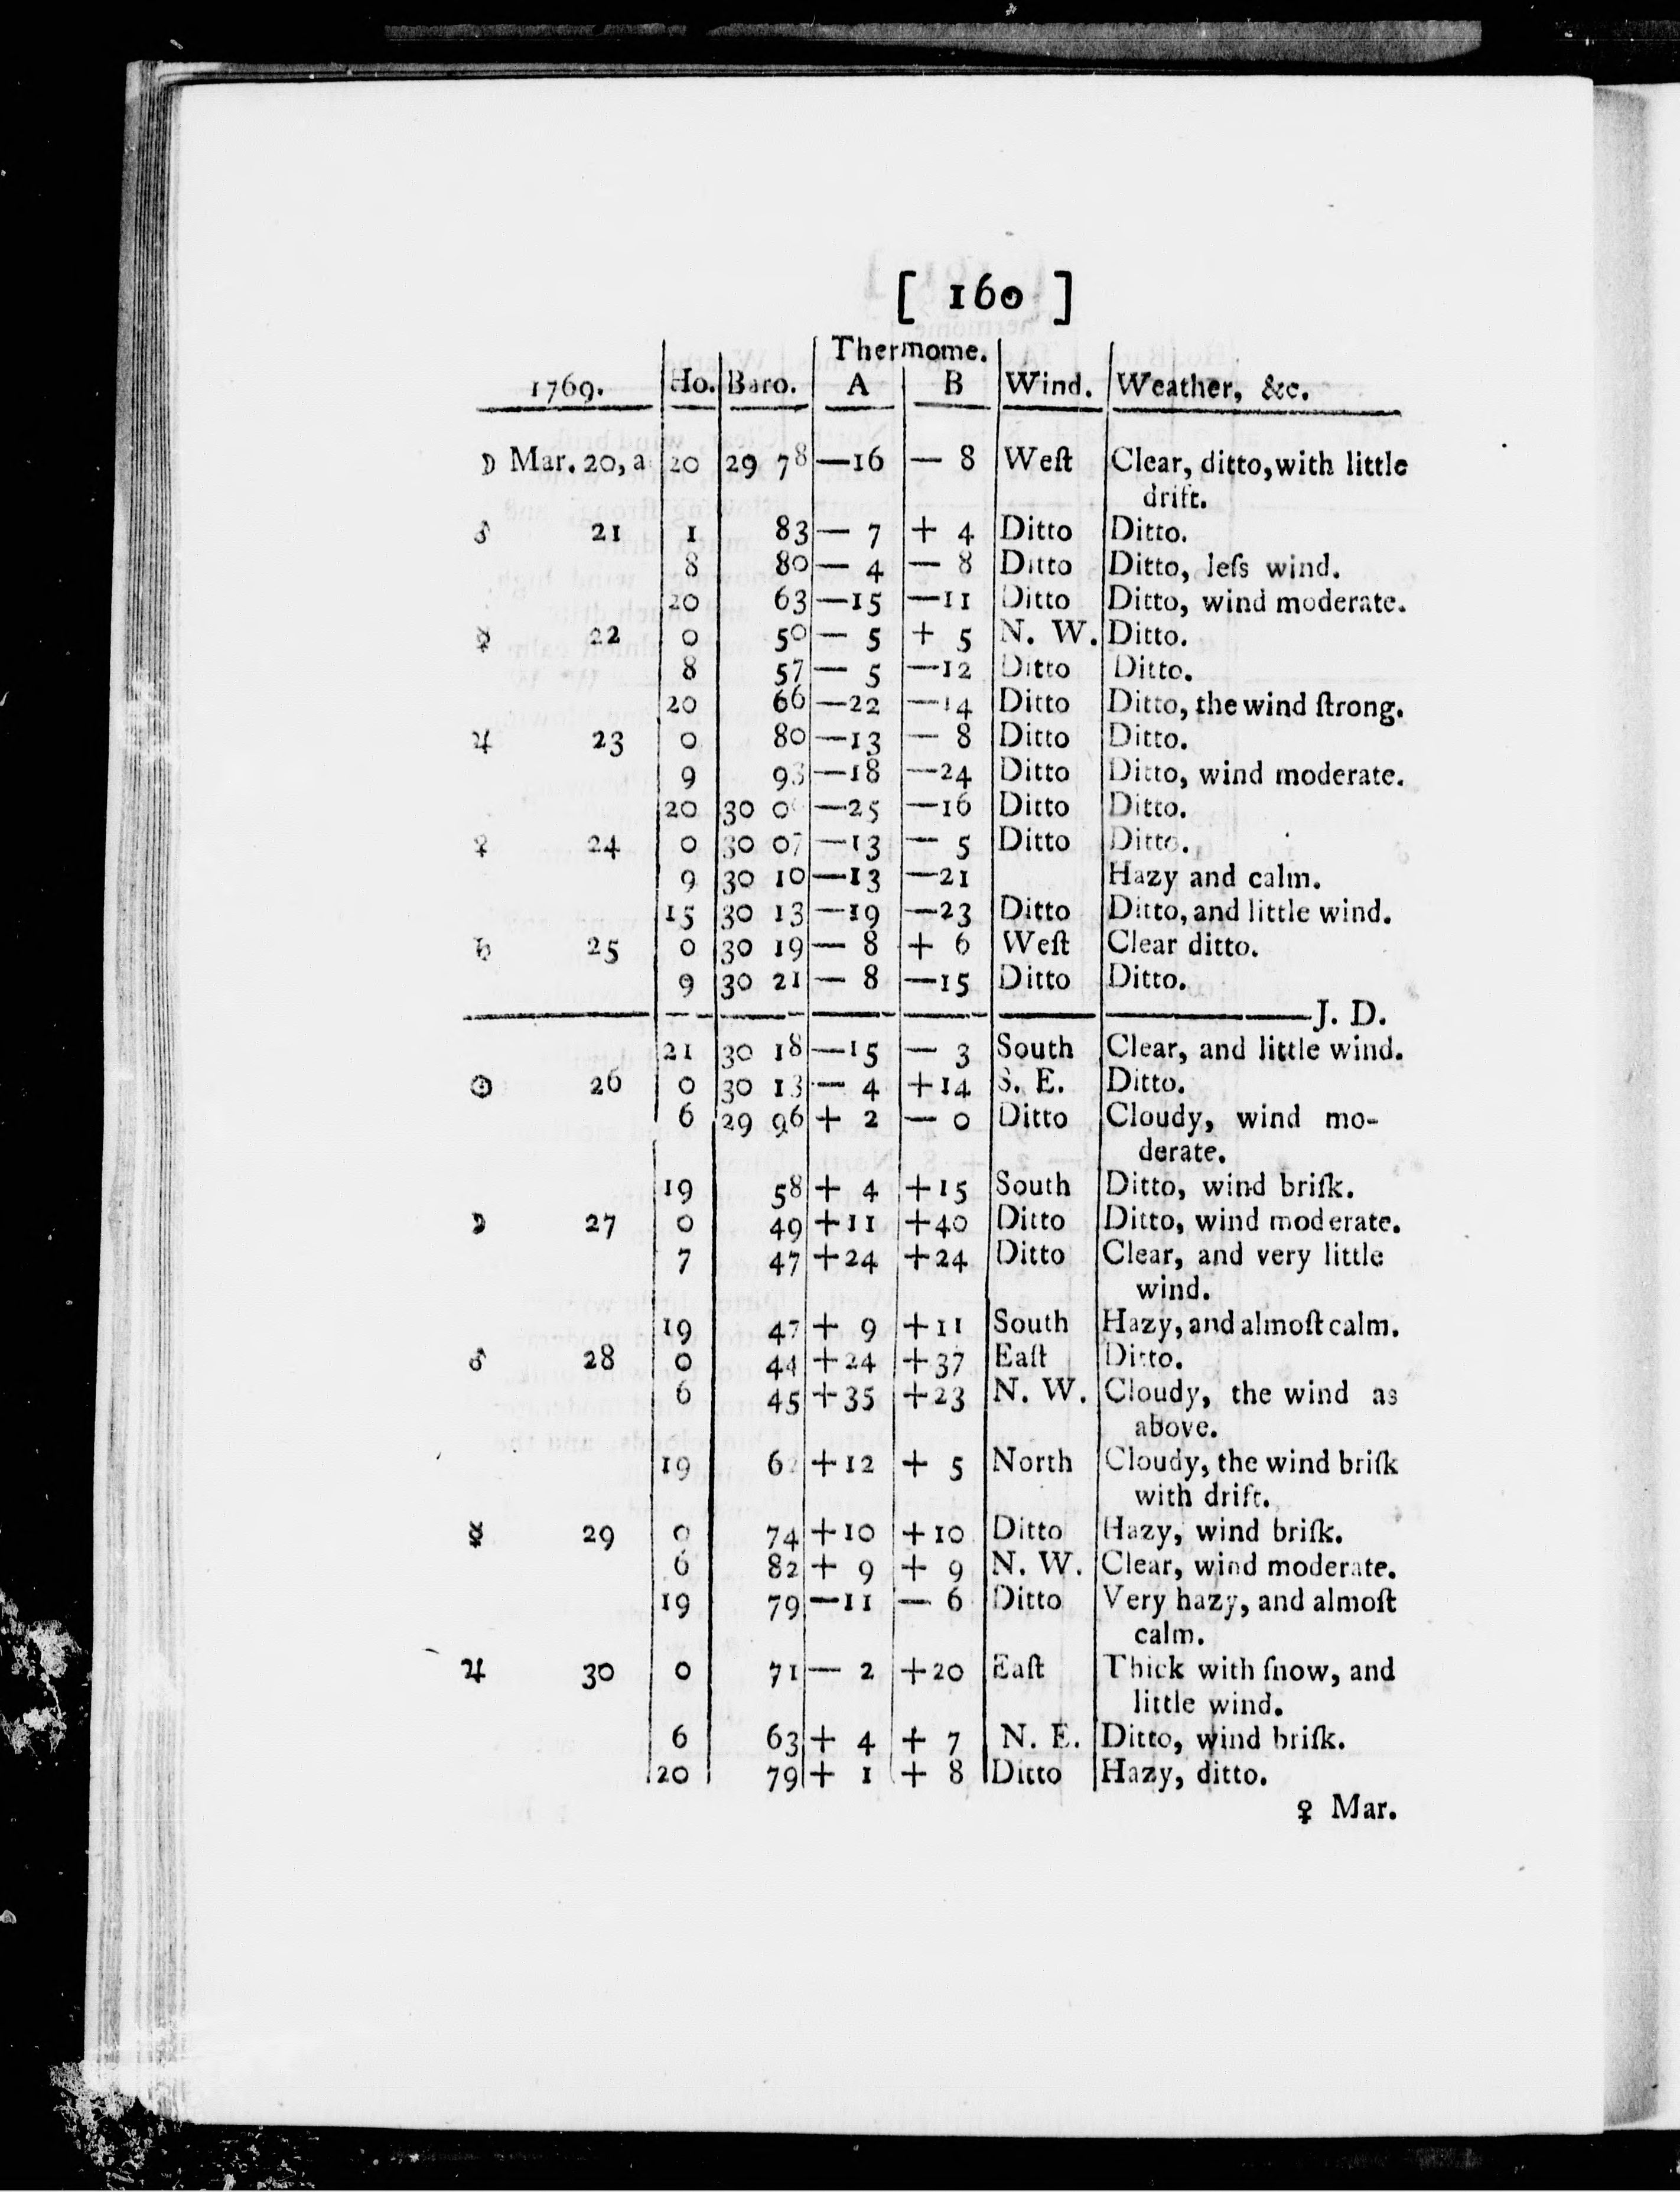 [ 160 ]
Thermome.
1769. Ho. Baro. A B Wind. Weather, &c.
☽ Mar. 20, a 20 29 78 —16 — 8 Weſt Clear, ditto, with little
drift.
♂ 21 1 83 — 7 + 4 Ditto Ditto.
8 80 — 4 — 8 Ditto Ditto, leſs wind.
20 63 —15 —11 Ditto Ditto, wind moderate.
☿ 22 0 50 — 5 + 5 N. W. Ditto.
8 57 — 5 —12 Ditto Ditto.
20 66 —22 —14 Ditto Ditto, the wind ſtrong.
♃ 23 0 80 —13 — 8 Ditto Ditto.
9 93 —18 —24 Ditto Ditto, wind moderate.
20 30 —25 —16 Ditto Ditto.
♀ 24 0 30 07 —13 — 5 Ditto Ditto.
9 30 10 —13 —21 Hazy and calm.
15 30 13 —19 —23 Ditto Ditto, and little wind.
♄ 25 0 30 19 — 8 + 6 Weſt Clear ditto.
9 30 21 — 8 —15 Ditto Ditto.
J. D.
21 30 18 —15 — 3 South Clear, and little wind.
☉ 26 0 30 13 — 4 +14 S. E. Ditto.
6 29 96 + 2 — 0 Ditto Cloudy, wind mo-
derate.
19 58 + 4 +15 South Ditto, wind briſk.
☽ 27 0 49 +11 +40 Ditto Ditto, wind moderate.
7 47 +24 +24 Ditto Clear, and very little
wind.
19 47 + 9 +11 South Hazy, and almoſt calm.
♂ 28 0 44 +24 +37 Eaſt Ditto.
6 45 +35 +23 N. W. Cloudy, the wind as
above.
19 62 +12 + 5 North Cloudy, the wind briſk
with drift.
☿ 29 0 74 +10 +10 Ditto Hazy, wind briſk.
6 82 + 9 + 9 N. W. Clear, wind moderate.
19 79 —11 — 6 Ditto Very hazy, and almoſt
calm.
♃ 30 0 71 — 2 +20 Eaſt Thick with ſnow, and
little wind.
6 63 + 4 + 7 N. E. Ditto, wind briſk.
20 79 + 1 + 8 Ditto Hazy, ditto.
♀ Mar.